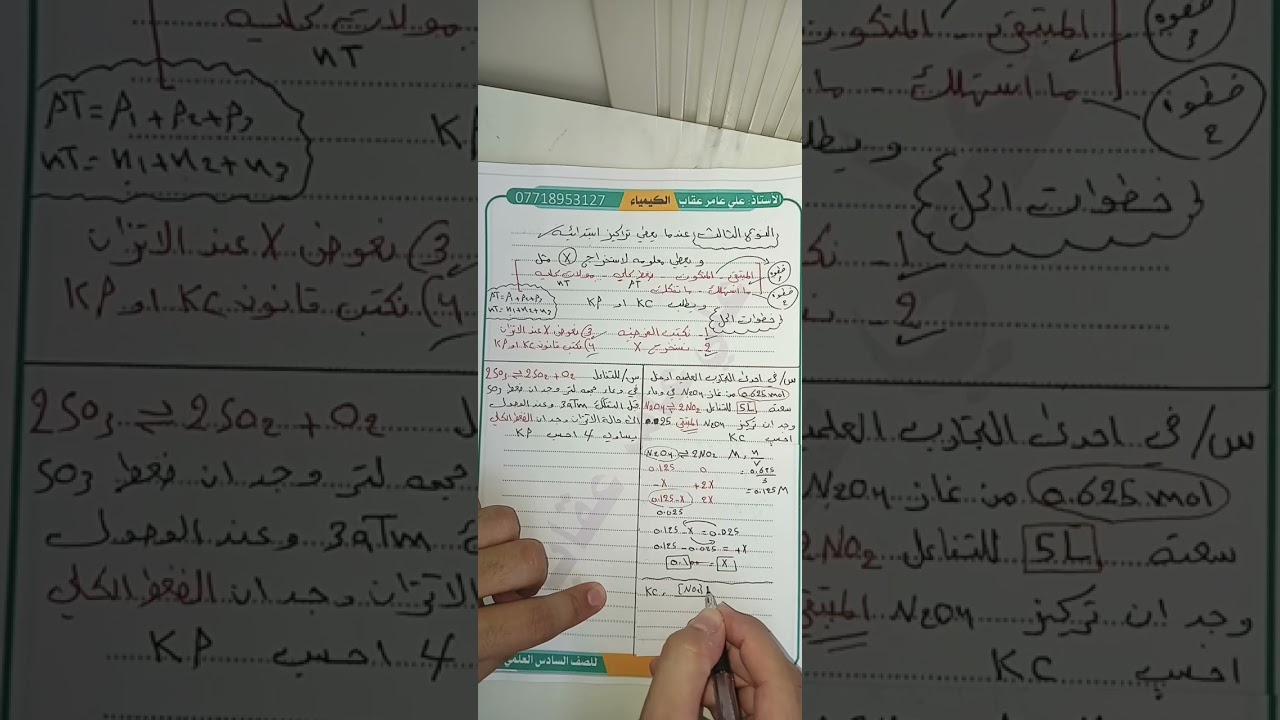 الأستاذ: علي عامر عقاب الكيمياء 07718953127
النوع الثالث عندما يعطي تراكيز ابتدائية
ويعطي معلومة لاستخراج X مثل
خطوة 3 المتبقي - المتكون - ضغط كلي - مولات كلية
PT nT
خطوة 2 ما استهلك - ما تفكك
ويطلب KC او KP
PT = P1 + P2 + P3
nT = n1 + n2 + n3
خطوات الحل
1- نكتب
2- نستخرج X
3) نعوض X عند الاتزان
4) نكتب قانون KC او KP
س/ في احدى التجارب العلمية ادخل
0.625 mol من غاز N2O4 في وعاء
سعته 5L للتفاعل N2O4 ⇌ 2NO2
وجد ان تركيز N2O4 المتبقي 0.025
احسب KC
N2O4 ⇌ 2NO2 M = n/V
0.125 0 = 0.625/5
-X +2X = 0.125 M
0.125-X 2X
0.025
0.125 - X = 0.025
0.125 - 0.025 = +X
0.100 = X
KC = [NO2]
س/ للتفاعل 2SO3 ⇌ 2SO2 + O2
في وعاء حجمه لتر وجد ان ضغط SO3
قبل التفكك 3aTm وعند الوصول
الى حالة الاتزان وجد ان الضغط الكلي
يساوي 4 احسب KP
للصف السادس العلمي